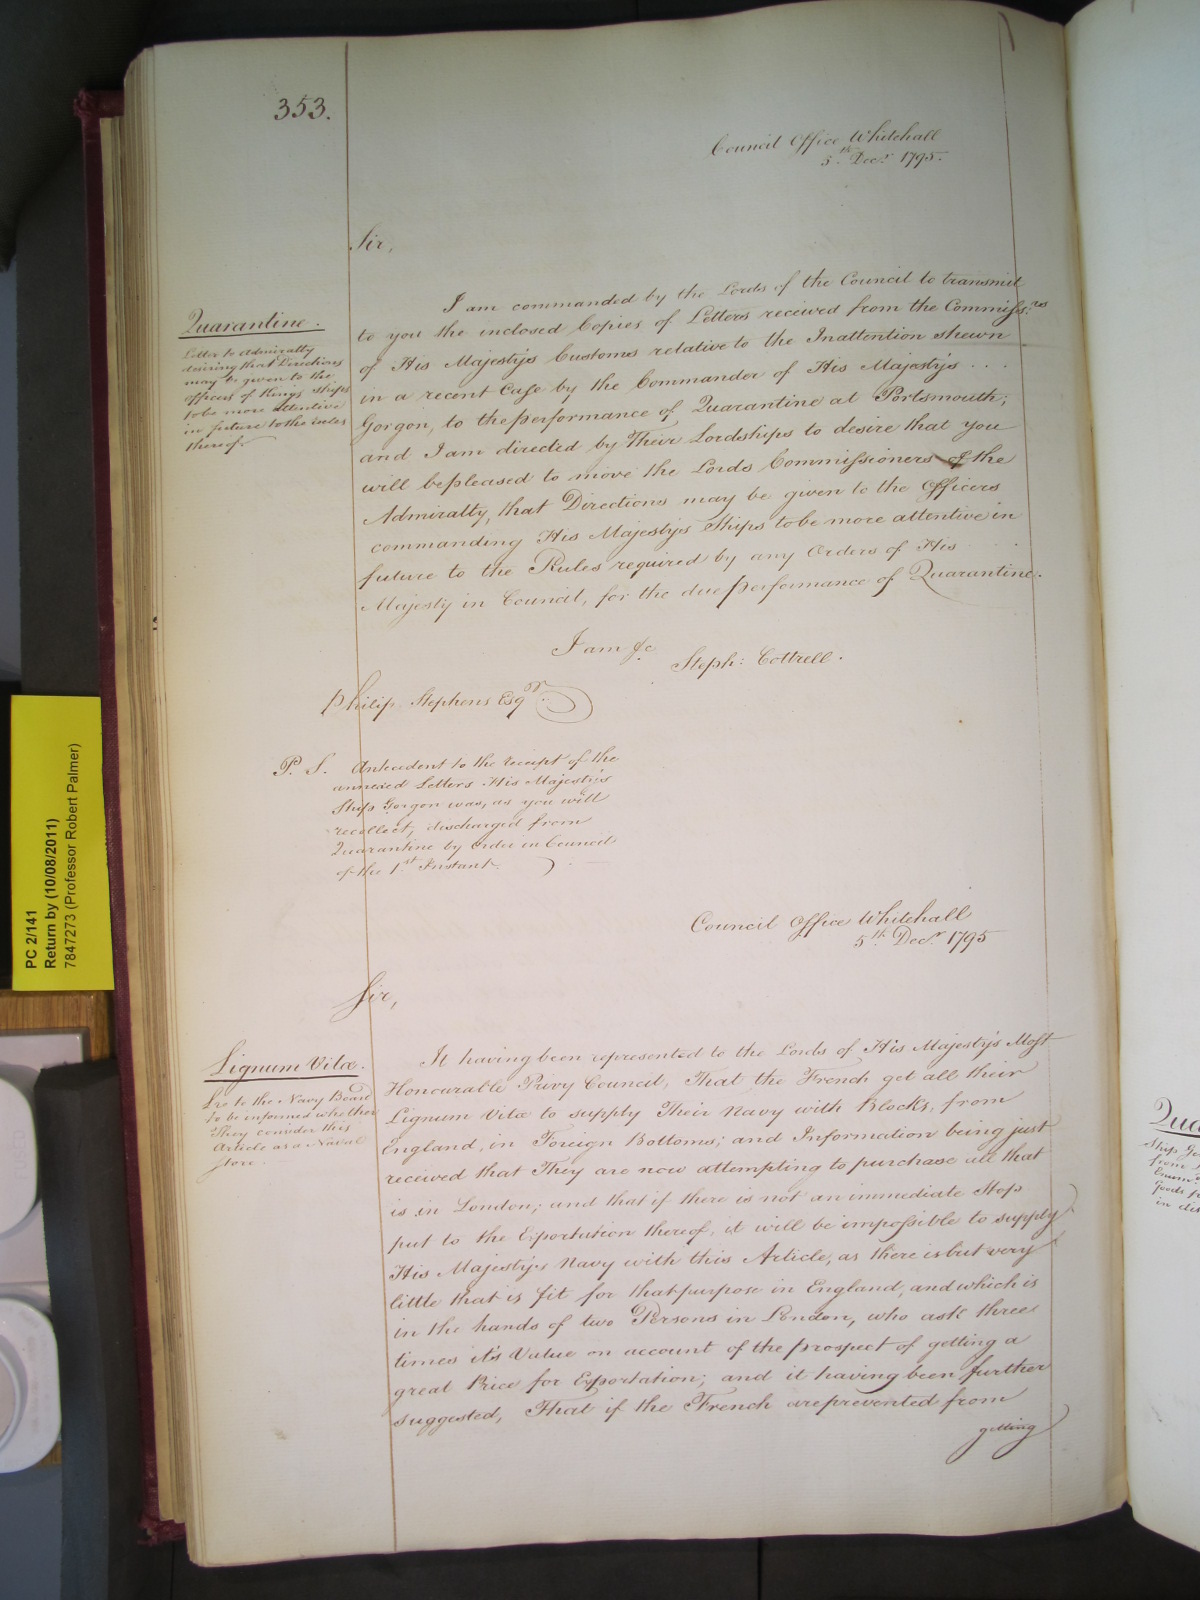 353.
Council Office Whitehall
5th Decr 1795.
Sir,
Quarantine.
Letter to Admiralty
desiring that Directions
may be given to the
officers of Kings Ships
to be more attentive
in future to the rules
thereof.
I am commanded by the Lords of the Council to transmit
to you the inclosed Copies of Letters received from the Commissrs
of His Majesty's Customs relative to the Inattention shewn
in a recent Case by the Commander of His Majesty's . . .
Gorgon, to the performance of Quarantine at Portsmouth;
and I am directed by Their Lordships to desire that you
will be pleased to move the Lords Commissioners of the
Admiralty, that Directions may be given to the Officers
commanding His Majesty's Ships to be more attentive in
future to the Rules required by any Orders of His . . .
Majesty in Council, for the due performance of Quarantine.
I am &c
Steph: Cottrell.
Philip Stephens Esqr.
P. S. Antecedent to the receipt of the
annexed Letters His Majesty's
Ship Gorgon was, as you will
recollect, discharged from
Quarantine by Order in Council
of the 1st Instant.
Council Office Whitehall
5th Decr 1795
Sir,
Lignum Vitæ.
Lre to the Navy Board
to be informed whether
They consider this
Article as a Naval
Store.
It having been represented to the Lords of His Majesty's Most
Honourable Privy Council, That the French get all their
Lignum Vitæ to supply Their Navy with Blocks, from
England, in Foreign Bottoms; and Information being just
received that They are now attempting to purchase all that
is in London; and that if there is not an immediate Stop
put to the Exportation thereof, it will be impossible to supply
His Majesty's Navy with this Article, as there is but very
little that is fit for that purpose in England, and which is
in the hands of two Persons in London, who ask three
times it's Value on account of the prospect of getting a
great Price for Exportation; and it having been further
suggested, That if the French are prevented from
getting
PC 2/141
Return by (10/08/2011)
7847273 (Professor Robert Palmer)
Ship Go
from
Goods
in dis